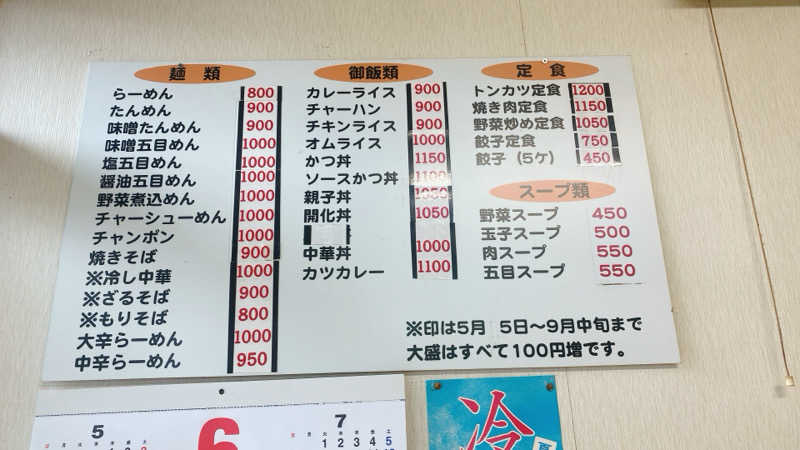 麺類
らーめん 800
たんめん 900
味噌たんめん 900
味噌五目めん 1000
塩五目めん 1000
醤油五目めん 1000
野菜煮込めん 1000
チャーシューめん 1000
チャンポン 1000
焼きそば 900
※冷し中華 1000
※ざるそば 900
※もりそば 800
大辛らーめん 1000
中辛らーめん 950
御飯類
カレーライス 900
チャーハン 900
チキンライス 900
オムライス 1000
かつ丼 1150
ソースかつ丼 1100
親子丼 1050
開化丼 1050
中華丼 1000
カツカレー 1100
定食
トンカツ定食 1200
焼き肉定食 1150
野菜炒め定食 1050
餃子定食 750
餃子（5ケ） 450
スープ類
野菜スープ 450
玉子スープ 500
肉スープ 550
五目スープ 550
※印は5月 5日〜9月中旬まで
大盛はすべて100円増です。
5
6
7
1 2 3 4 5
冷